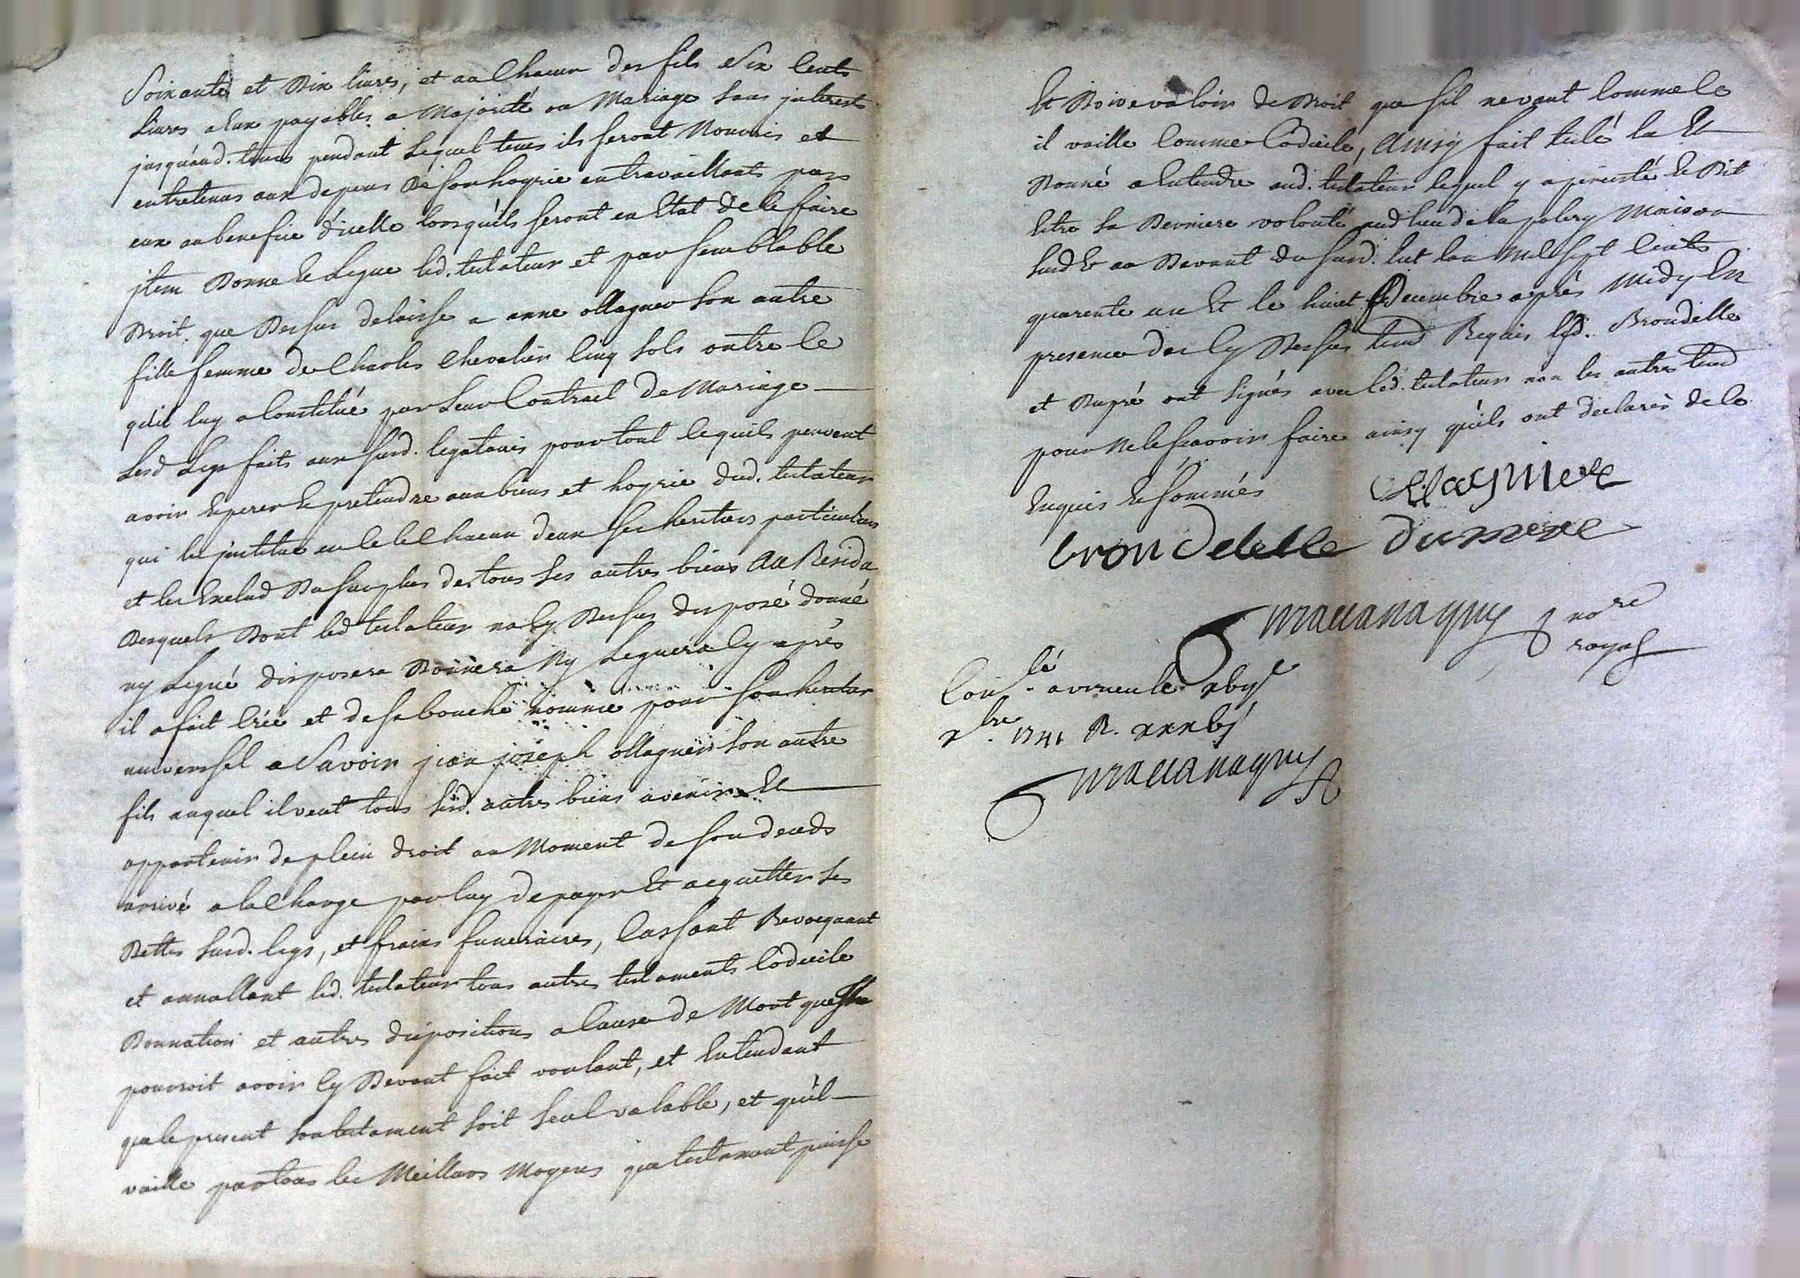 Soixante et Dix livres, et a chacun des fils Six Cents
livres a eux payables a Majorité ou Mariage sans interest
jusqu'aud. tems pendant lequel tems ils seront Nourris et
entretenus aux depens de son hoyrie en travaillants par
eux au benefice d'icelle lorsquils seront en Etat de le faire
jtem Donne et Legue led. testateur et par semblable
Droit que Dessus delaisse a anne ollagner son autre
fille femme de Charles Chevalier Cinq sols outre le
qu'il luy a Constitué par leur Contract de Mariage
Lesd Legs faits aux susd. legataires pour tout ce quils peuvent
avoir esperer et pretendre aux biens et hoyrie dud. testateur
qui les jnstitue en ce chacun d'eux ses heritiers particuliers
et les Exclud Du surplus de tous ses autres biens Au Residu
Desquels Dont led testateur na Cy Dessus disposé donné
ny Legué disposera Donnera Ny Leguera Cy après
il a fait Créé et de sa bouche nommé pour son heritier
universel a Savoir jean joseph ollagner son autre
fils auquel il veut tous sesd. autres biens avenir Et
appartenir de plein droit au Moment de son deceds
arrivé a la Charge par luy de payer Et acquitter ses
Dettes susd. legs, et fraix funeraires, Cassant Revocquant
et annullant led. testateur tous autres testaments Codicile
Donnation et autres dispositions a Cause de Mort quil
pourroit avoir Cy Devant fait voulant, et Entendant
que le present son testament soit seul valable, et qu'il
vaille par tous les Meilleurs Moyens que testament puisse
Et Doive valoir de Droit que sil ne vaut Comme le
il vaille Comme Codicile, Ainsy fait leu la Et
Donné a Entendre aud. testateur lequel y a persisté Et Dit
Estre sa Derniere volonté aud lieu de la Maison
dud Et au Devant du susd. lut lan Mil sept Cents
quarente un Et le huict Decembre après Midy En
presence des Cy Dessus Requis led. Brondelle
et Dupré ont signés avec led. testateur non les autres
pour Ne le scavoir faire ainsy qu'ils ont declarés de ce
Enquis Et sommés
Ollagnier
brondelle
nore
royal
1741 R.